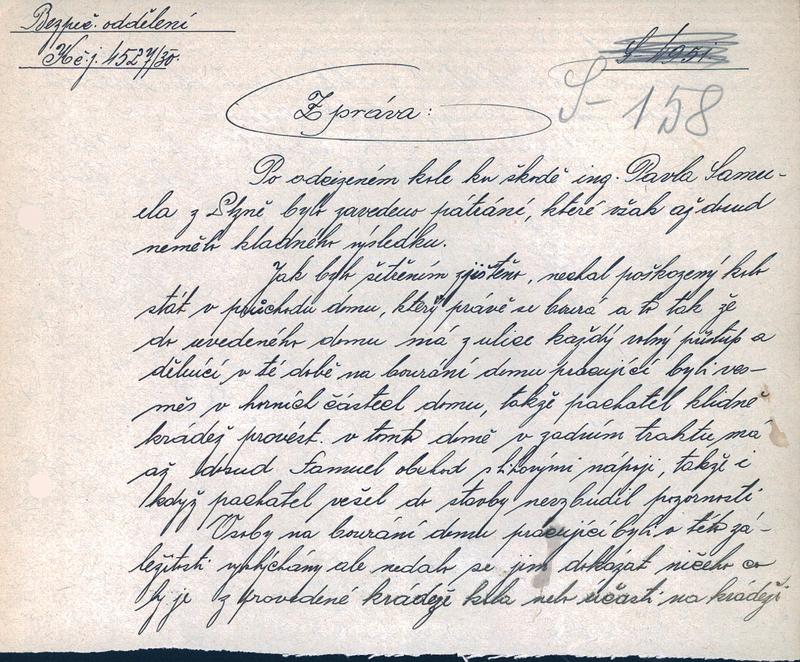 Bezpeč. oddělení
K č.j. 4527/30.
S 1951
S-158
Zpráva:
Po odcizeném kole ku škodě ing. Pavla Samu-
ela z Plzně bylo zavedeno pátrání, které však až dosud
nemělo kladného výsledku.
Jak bylo šetřením zjištěno, nechal poškozený kolo
stát v průchodu domu, který právě se bourá a to tak že
do uvedeného domu má z ulice každý volný přístup a
dělníci v té době na bourání domu pracující byli ves-
měs v horních částech domu, takže pachatel klidně
krádež provést. v tomto domě v zadním traktu má
až dosud Samuel obchod s lihovými nápoji, takže i
když pachatel vešel do stavby nevzbudil pozornosti
Osoby na bourání domu pracující byli v této zá-
ležitosti vyslýchány ale nedalo se jim dokázat ničeho co
by je z provedené krádeže kola nebo účasti na krádeži